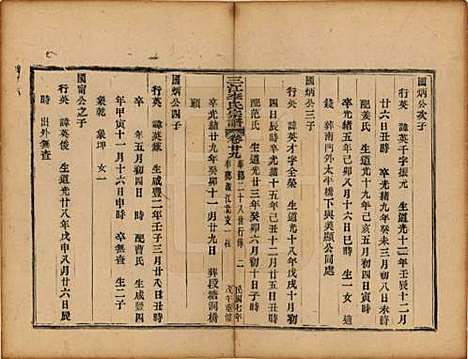 國炳公次子
行英 諱英千字振元 生道光十二年壬辰十二月
廿六日丑時 卒光緒九年癸未三月初八日未時
配姜氏 生道光十九年己亥五月初四日寅時
卒光緒五年己卯八月初六日巳時 生一女 適
錢 葬南門外太平橋下與美顯公同處
國炳公三子
行英 諱英才字全榮 生道光十八年戊戌十月
初十日丑時 卒光緒十五年己丑十二月廿五日丑時
配范氏 生道光廿三年癸卯六月初十日子時
卒光緒廿九年癸卯十一月廿九日 葬段塘洞橋
三江李氏宗譜 卷廿九
國炳公四子
行英 諱英 生咸豐二年壬子三月廿八日丑時
卒 年五月初四日時 配曹氏 生咸豐四
年甲寅十一月十六日申時 卒無查 生二子
象乾 象坤 女一
國甯公之子
行英 諱英俊 生道光廿八年戊申八月廿六日辰
時 出外無查